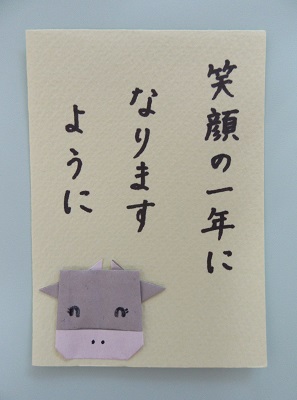 笑顔の一年に
なります
ように